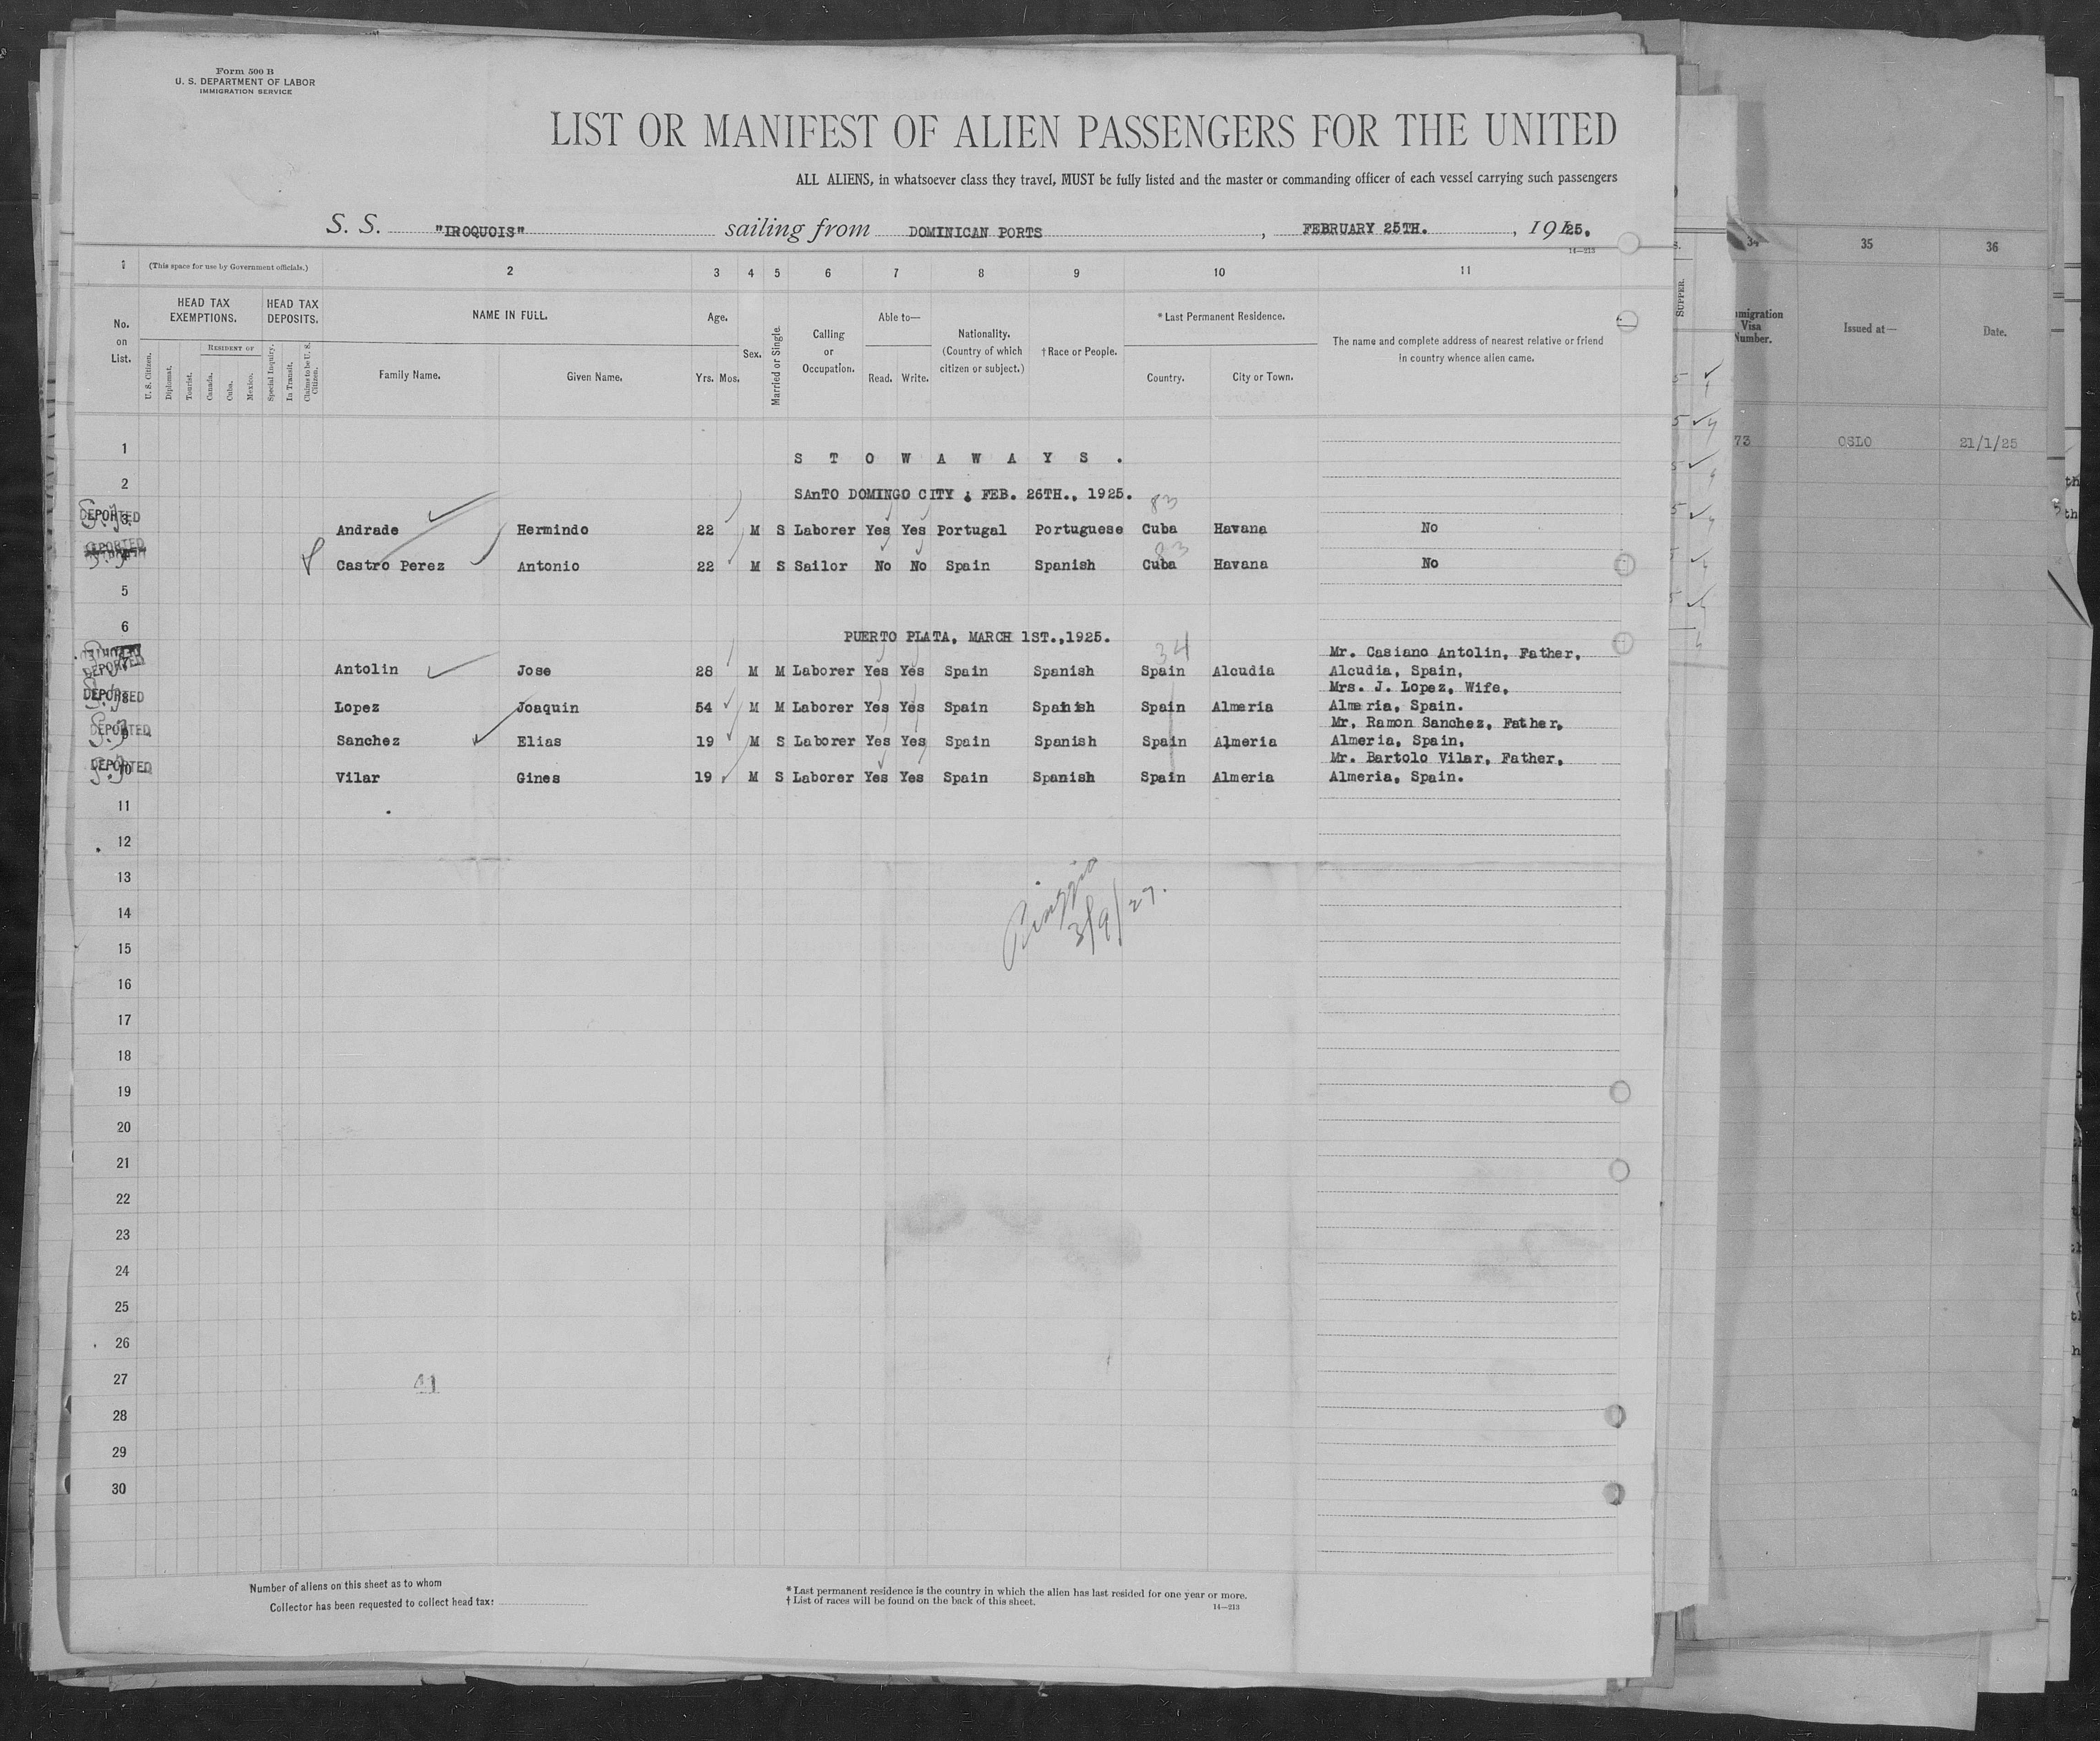 Form 500 B
U. S. DEPARTMENT OF LABOR
IMMIGRATION SERVICE
LIST OR MANIFEST OF ALIEN PASSENGERS FOR THE UNITED
ALL ALIENS, in whatsoever class they travel, MUST be fully listed and the master or commanding officer of each vessel carrying such passengers
S. S. "IROQUOIS" sailing from DOMINICAN PORTS , FEBRUARY 25TH. , 1925.
14—213
1 (This space for use by Government officials.) 2 3 4 5 6 7 8 9 10 11
No. on List.
HEAD TAX EXEMPTIONS.
HEAD TAX DEPOSITS.
NAME IN FULL.
Age.
Sex.
Married or Single.
Calling or Occupation.
Able to—
Nationality. (Country of which citizen or subject.)
† Race or People.
* Last Permanent Residence.
The name and complete address of nearest relative or friend in country whence alien came.
U. S. Citizen. Diplomat. Tourist. RESIDENT OF Canada. Cuba. Mexico. Special Inquiry. In Transit. Claims to be U. S. Citizen.
Family Name. Given Name. Yrs. Mos. Read. Write. Country. City or Town.
1
S T O W A W A Y S .
2
SAnTO DOMINGO CITY ; FEB. 26TH., 1925.
83
DEPORTED 3 Andrade Hermindo 22 M S Laborer Yes Yes Portugal Portuguese Cuba Havana No
83
DEPORTED Castro Perez Antonio 22 M S Sailor No No Spain Spanish Cuba Havana No
5
6
PUERTO PLATA, MARCH 1ST.,1925.
34
Mr. Casiano Antolin, Father,
DEPORTED Antolin Jose 28 M M Laborer Yes Yes Spain Spanish Spain Alcudia Alcudia, Spain,
Mrs. J. Lopez, Wife,
DEPORTED 8 Lopez Joaquin 54 M M Laborer Yes Yes Spain Spanish Spain Almeria Almeria, Spain.
Mr. Ramon Sanchez, Father,
DEPORTED Sanchez Elias 19 M S Laborer Yes Yes Spain Spanish Spain Almeria Almeria, Spain,
Mr. Bartolo Vilar, Father,
DEPORTED 10 Vilar Gines 19 M S Laborer Yes Yes Spain Spanish Spain Almeria Almeria, Spain.
11
12
13
14
3/9/27.
15
16
17
18
19
20
21
22
23
24
25
26
27
41
28
29
30
Number of aliens on this sheet as to whom
Collector has been requested to collect head tax:
* Last permanent residence is the country in which the alien has last resided for one year or more.
† List of races will be found on the back of this sheet.
14—213
SUPPER.
34 35 36
Immigration Visa Number. Issued at— Date.
73 OSLO 21/1/25